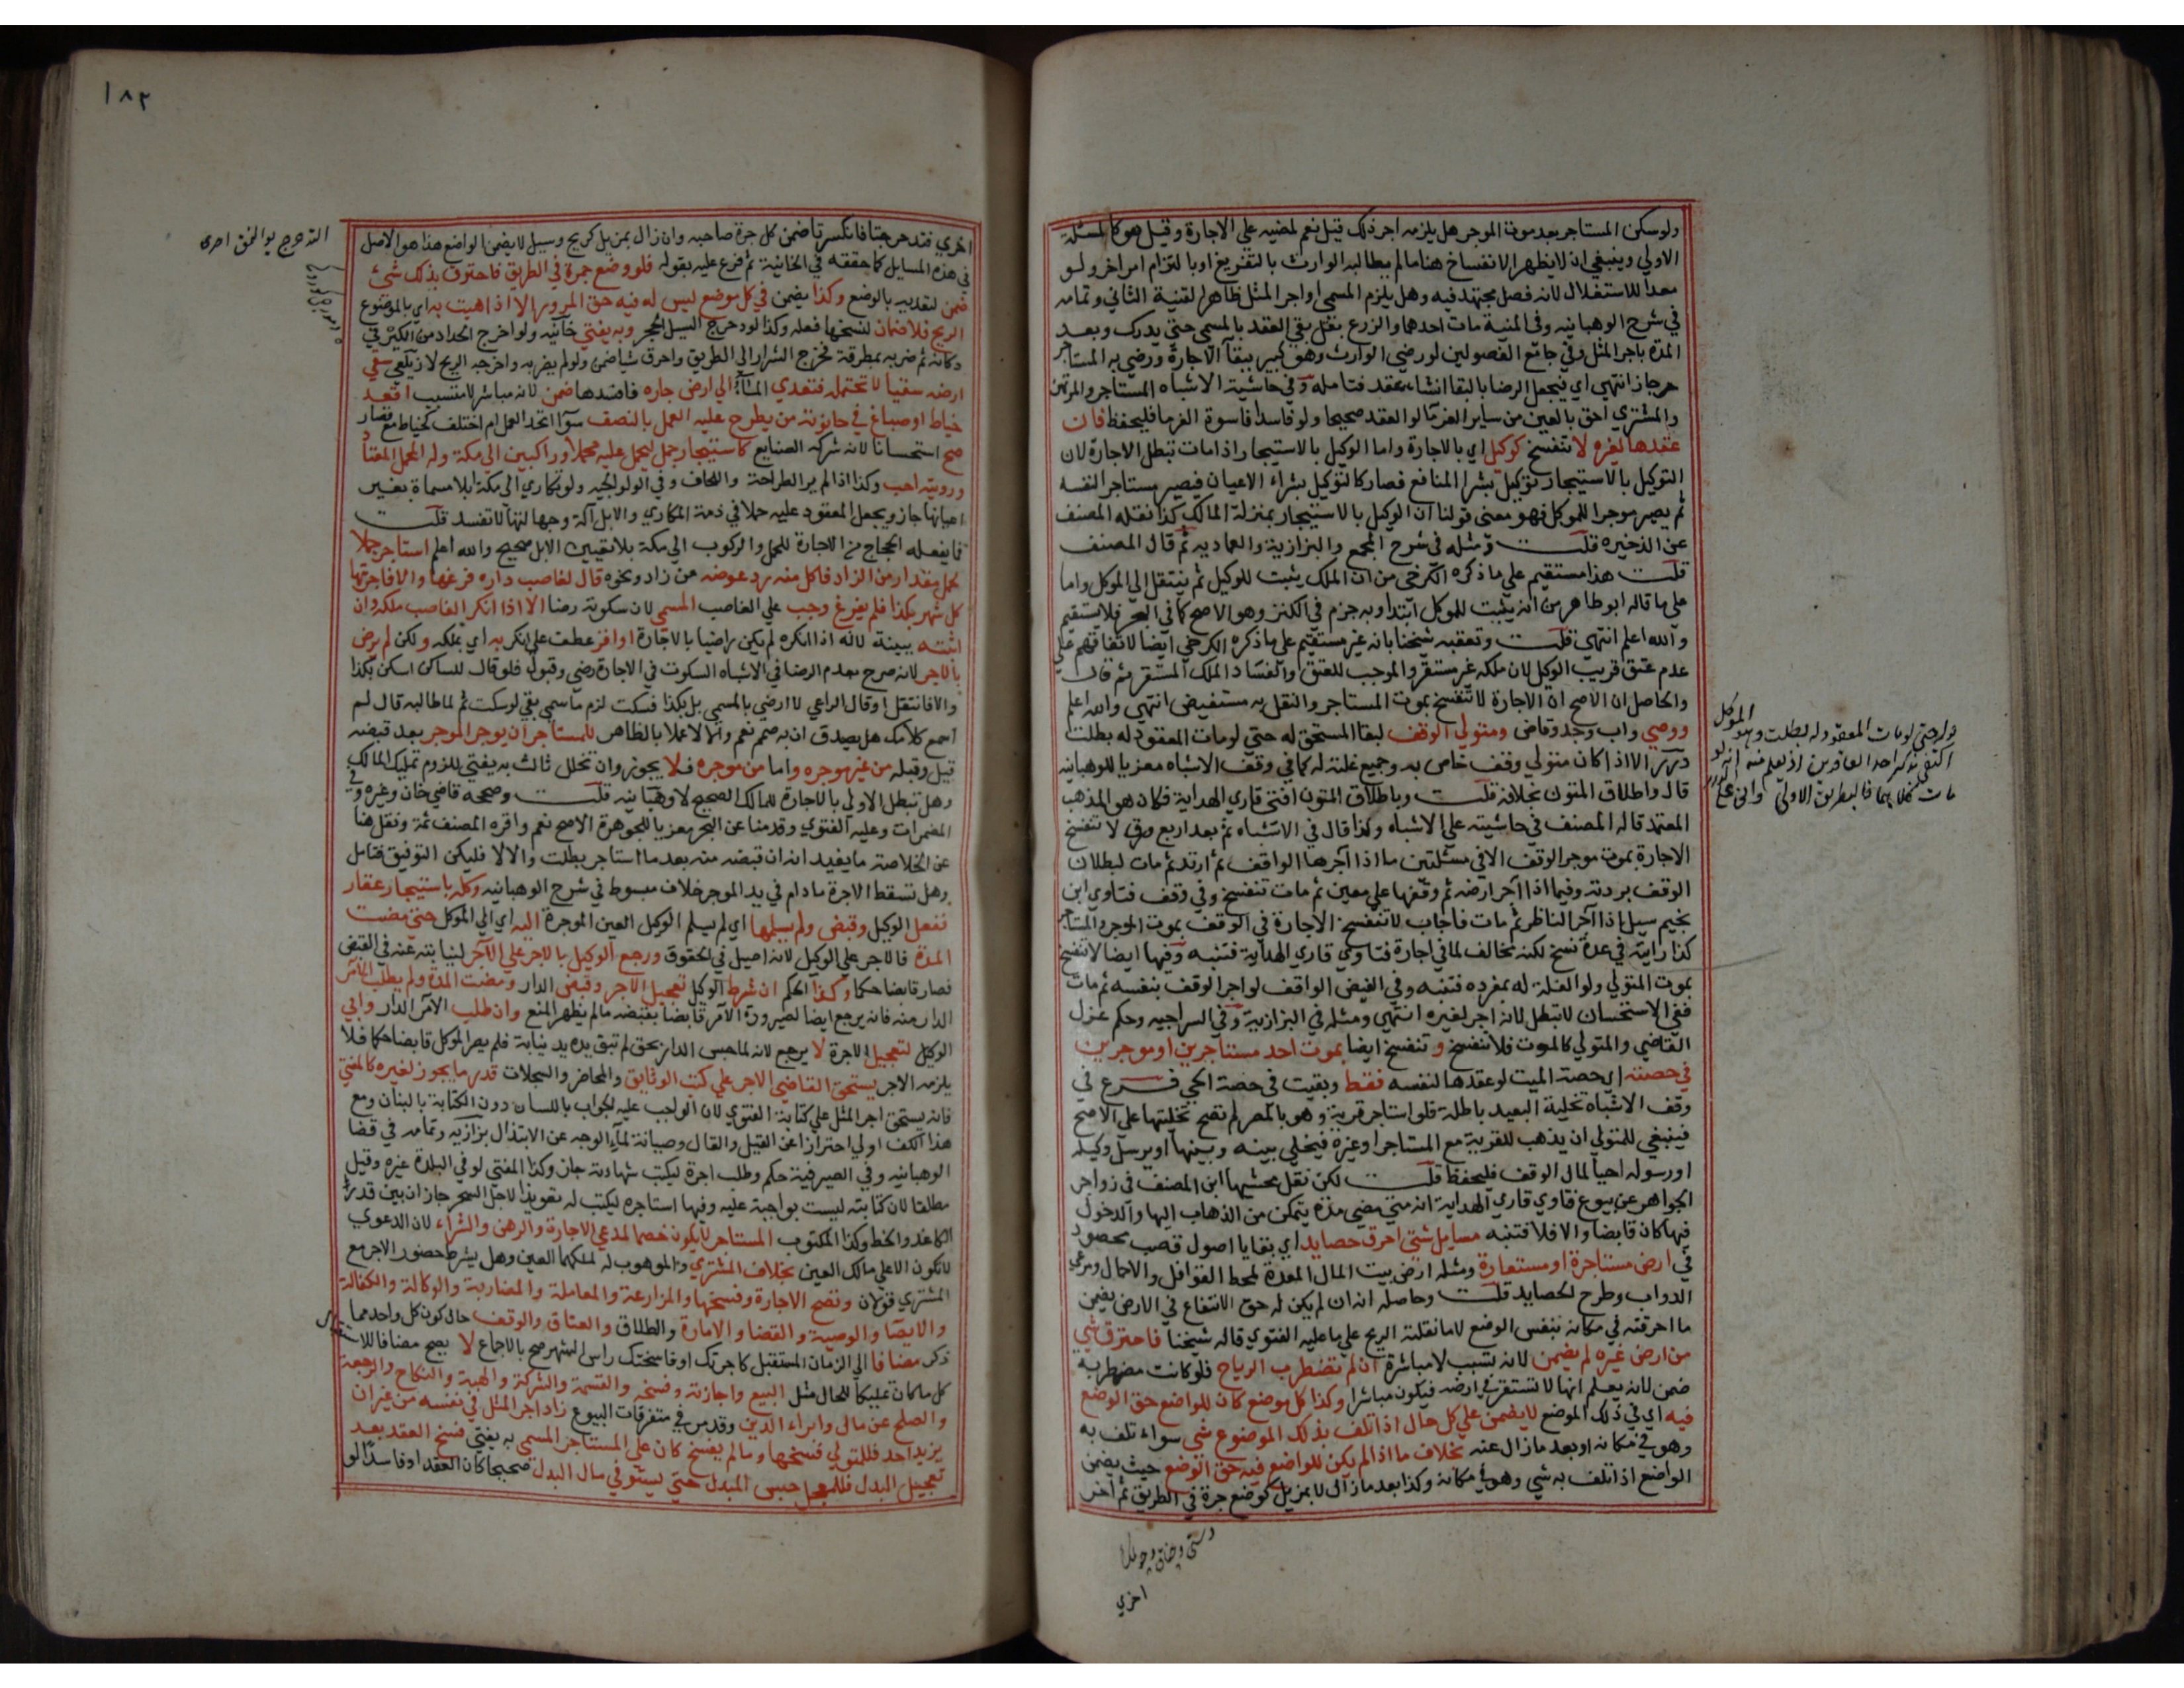 ولو سكن المستاجر بعد موت الموجر هل يلزمه اجر ذلك قيل نعم لمضيه علي الاجارة وقيل هو كالمسئلة
الاولي وينبغي ان لا يظهر الانفساخ هنا مالم يطالبه الوارث بالتفريغ او بالتزام امر اخر ولو
معدا للاستغلال لانه فصل مجتهد فيه وهل يلزم المسمي او اجر المثل ظاهر القنية الثاني وتمامه
في شرح الوهبانيه وفي المنية مات احدهما والزرع بقل بقي العقد بالمسمي حتي يدرك وبعد
المدة باجر المثل وفي جامع الفصولين لو رضي الوارث وهو كبير ببقآ الاجارة ورضي به المستاجر
جاز انتهي اي فيجعل الرضا بالبقا انشاء عقد فتامله وفي حاشية الاشباه المستاجر والمرتهن
والمشتري احق بالعين من ساير الغرمآ لو العقد صحيحا ولو فاسدا فاسوة الغرما فليحفظ فان
عقدها لغيره لا تنفسخ كوكيل اي بالاجارة واما الوكيل بالاستيجار اذا مات تبطل الاجارة لان
التوكيل بالاستيجار توكيل بشرا المنافع فصار كالتوكيل بشراء الاعيان فيصير مستاجرا لنفسه
ثم يصير موجرا للموكل فهو معني قولنا ان الوكيل بالاستيجار بمنزلة المالك كذا نقله المصنف
عن الذخيره قلت ومثله في شرح المجمع والبزازية والعماديه ثم قال المصنف
قلت هذا مستقيم علي ما ذكره الكرخي من ان الملك يثبت للوكيل ثم ينتقل الي الموكل واما
علي ما قاله ابو طاهر من انه يثبت للموكل ابتدا وبه جزم في الكنز وهو الاصح كما في البحر فلا يستقيم
والله اعلم انتهي قلت وتعقبه شيخنا بانه غير مستقيم علي ما ذكره الكرخي ايضا لاتفاقهم علي
عدم عتق قريب الوكيل لان ملكه غير مستقر والموجب للعتق والفساد الملك المستقر ثم قال
والحاصل ان الاصح ان الاجارة لا تنفسخ بموت المستاجر والنقل به مستفيض انتهي والله اعلم
ووصي واب وجد وقاض ومتولي الوقف لبقا المستحق له حتي لو مات المعقود له بطلت
درر الا اذا كان متولي وقف خاص به وجميع غلته له كما في وقف الاشباه معزيا للوهبانيه
قال واطلاق المتون بخلافه قلت وباطلاق المتون افتي قاري الهداية فكان هو المذهب
المعتمد قاله المصنف في حاشيته علي الاشباه وكذا قال في الاشباه ثم بعد اربع ورق لا تنفسخ
الاجارة بموت موجر الوقف الا في مسئلتين ما اذا آجرها الواقف ثم ارتد ثم مات لبطلان
الوقف بردته وفيما اذا آجر ارضه ثم وقفها علي معين ثم مات تنفسخ وفي وقف فتاوي ابن
نجيم سيل اذا آجر الناظر ثم مات فاجاب لا تنفسخ الاجارة في الوقف بموت الموجر والمستاجر
كذا رايته في عدة نسخ لكنه مخالف لما في اجارة فتاوي قاري الهداية فتنبه وفيها ايضا لا تنفسخ
بموت المتولي ولو الغلة له بمفرده فتنبه وفي الفيض الواقف لو اجر الوقف بنفسه ثم مات
ففي الاستحسان لا تبطل لانه اجر لغيره انتهي ومثله في البزازية وفي السراجيه وحكم عزل
القاضي والمتولي كالموت فلا تنفسخ و تنفسخ ايضا بموت احد مستاجرين او موجرين
في حصته اي حصة الميت لو عقدها لنفسه فقط وبقيت في حصة الحي فرع في
وقف الاشباه تخلية البعيد باطلة فلو استاجر قرية وهو بالمصر لم تصح تخليتها علي الاصح
فينبغي للمتولي ان يذهب للقرية مع المستاجر او غيره فيخلي بينه وبينها او يرسل وكيله
او رسوله احيا لمال الوقف فليحفظ قلت لكن نقل محشيها ابن المصنف في زواهر
الجواهر عن بيوع فتاوي قاري الهداية انه متي مضي مدة يتمكن من الذهاب اليها والدخول
فيها كان قابضا والا فلا فتنبه مسايل شتي احرق حصايد اي بقايا اصول قصب محصود
في ارض مستاجرة او مستعارة ومثله ارض بيت المال المعدة لمحط القوافل والاحمال ومرعي
الدواب وطرح الحصايد قلت وحاصله انه ان لم يكن له حق الانتفاع في الارض يضمن
ما احرقته في مكانه بنفس الوضع لا ما نقلته الريح علي ما عليه الفتوي قاله شيخنا فاحترق شي
من ارض غيره لم يضمن لانه تسبب لا مباشرة ان لم تضطرب الرياح فلو كانت مضطربة
ضمن لانه يعلم انها لا تستقر في ارضه فيكون مباشرا وكذا كل موضع كان للواضع حق الوضع
فيه اي في ذلك الموضع لا يضمن علي كل حال اذا تلف بذلك الموضوع شي سواء تلف به
وهو في مكانه او بعد ما زال عنه بخلاف ما اذا لم يكن للواضع فيه حق الوضع حيث يضمن
الواضع اذا تلف به شي وهو في مكانه وكذا بعد ما زال لا بمزيل كوضع جرة في الطريق ثم آخر
اخري
الموكل
١٨٢
اخري فتدحرجتا فانكسرتا ضمن كل جرة صاحبه وان زال بمزيل كريح وسيل لا يضمن الواضع هذا هو الاصل
في هذه المسايل كما حققه في الخانية ثم فرع عليه بقوله فلو وضع جمرة في الطريق فاحترق بذلك شئ
ضمن لتعديه بالوضع وكذا يضمن في كل موضع ليس له فيه حق المرور الا اذا هبت به اي بالموضوع
الريح فلا ضمان لنسخها فعله وكذا لو دحرج السيل الحجر وبه يفتي خانيه ولو اخرج الحداد من الكير في
دكانه ثم ضربه بمطرقة فخرج الشرار الي الطريق واحرق شيا ضمن ولو لم يضربه واخرجه الريح لا زيلعي سقي
ارضه سقيا لا تحتمله فتعدي المآء الي ارض جاره فافسدها ضمن لانه مباشر لا متسبب اقعد
خياط او صباغ في حانوته من يطرح عليه العمل بالنصف سوآ اتحد العمل ام اختلف كخياط مع قصار
صح استحسانا لانه شركه الصنايع كاستيجار جمل ليحمل عليه محملا وراكبين الي مكة وله المحمل المعتاد
ورويته احب وكذا اذا لم ير الطراحة واللحاف وفي الولوالجيه ولو تكاري الي مكة ابلا مسماة بغير
اعيانها جاز ويجعل المعقود عليه حملا في ذمة المكاري والابل آلة وجهالتها لا تفسد قلت
فما يفعله الحجاج من الاجارة للحمل والركوب الي مكة بلا تعيين الابل صحيح والله اعلم استاجر جملا
لحمل مقدار من الزاد فاكل منه رد عوضه من زاد ونحوه قال لغاصب داره فرغها والا فاجرتها
كل شهر بكذا فلم يفرغ وجب علي الغاصب المسمي لان سكوته رضا الا اذا انكر الغاصب ملكه وان
اثبته ببينة لانه اذا انكره لم يكن راضيا بالاجارة او اقر عطف علي انكر به اي بملكه ولكن لم يرض
بالاجر لانه صرح بعدم الرضا في الاشباه السكوت في الاجارة رضي وقبول فلو قال للساكن اسكن بكذا
والا فانتقل او قال الراعي لا ارضي بالمسمي بل بكذا فسكت لزم ما سمي بقي لو سكت ثم لما طالبه قال لم
اسمع كلامك هل يصدق ان به صمم نعم والا لا عملا بالظاهر للمستاجر ان يوجر الموجر بعد قبضه
قيل وقبله من غير موجره واما من موجره فلا يجوز وان تخلل ثالث به يفتي للزوم تمليك المالك
وهل تبطل الاولي بالاجارة للمالك الصحيح لا وهبانيه قلت وصححه قاضي خان وغيره وفي
المضمرات وعليه الفتوي وقدمنا عن البحر معزيا للجوهرة الاصح نعم واقره المصنف ثمة ونقل هنا
عن الخلاصة ما يفيد انه ان قبضه منه بعد ما استاجر بطلت والا لا فليكن التوفيق فتامل
وهل تسقط الاجرة ما دام في يد الموجر خلاف مبسوط في شرح الوهبانيه وكله باستيجار عقار
ففعل الوكيل وقبض ولم يسلمها اي لم يسلم الوكيل العين الموجرة اليه اي الي الموكل حتي مضت
المدة فالاجر علي الوكيل لانه اصيل في الحقوق ورجع الوكيل بالاجر علي الآمر لنيابته عنه في القبض
فصار قابضا حكما وكذا الحكم ان شرط الوكيل تعجيل الاجر وقبض الدار ومضت المدة ولم يطلب الآمر
الدار منه فانه يرجع ايضا لصيرورة الآمر قابضا بقبضه مالم يظهر المنع وان طلب الآمر الدار وابي
الوكيل لتعجيل الاجرة لا يرجع لانه لما حبس الدار بحق لم تبق يده يد نيابة فلم يصر الموكل قابضا حكما فلا
يلزمه الاجر يستحق القاضي الاجر علي كتب الوثايق والمحاضر والسجلات قدر ما يجوز لغيره كالمفتي
فانه يستحق اجر المثل علي كتابة الفتوي لان الواجب عليه الجواب باللسان دون الكتابة بالبنان ومع
هذا الكف اولي احترازا عن القيل والقال وصيانة لمآء الوجه عن الابتذال بزازيه وتمامه في قضا
الوهبانيه وفي الصيرفية حكم وطلب اجرة ليكتب شهادته جاز وكذا المفتي لو في البلدة غيره وقيل
مطلقا لان كتابته ليست بواجبة عليه وفيها استاجره ليكتب له تعويذا لاجل السحر جاز ان بين قدر
الكاغد والخط وكذا المكتوب المستاجر لا يكون خصما لمدعي الاجارة والرهن والشراء لان الدعوي
لا تكون الا علي مالك العين بخلاف المشتري والموهوب له لملكهما العين وهل يشرط حضور الاجر مع
المشتري قولان وتصح الاجارة وفسخها والمزارعة والمعاملة والمضاربة والوكالة والكفالة
والايصا والوصية والقضا والامارة والطلاق والعتاق والوقف حال كون كل واحد مما
ذكر مضافا الي الزمان المستقبل كاجرتك او فاسختك راس الشهر صح بالاجماع لا يصح مضافا للاستقبال
كل ما كان تمليكا للحال مثل البيع واجازته وفسخه والقسمة والشركة والهبة والنكاح والرجعة
والصلح عن مال وابراء الدين وقد مر في متفرقات البيوع زاد اجر المثل في نفسه من غير ان
يزيد احد فللمتولي فسخها ومالم يفسخ كان علي المستاجر المسمي به يفتي فسخ العقد بعد
تعجيل البدل فللمعجل حبس المبدل حتي يستوفي مال البدل صحيحا كان العقد او فاسدا لو